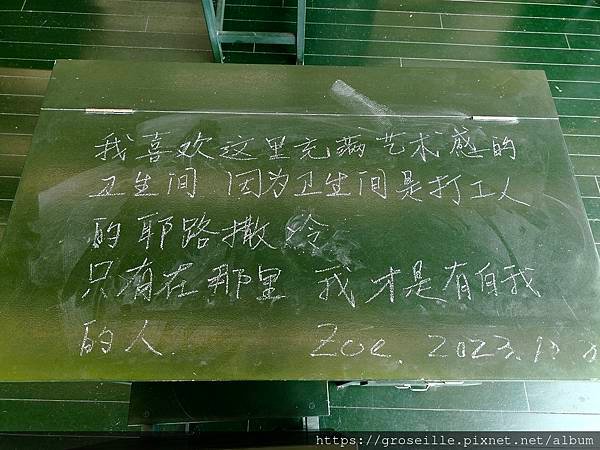 我喜欢这里充满艺术感的
卫生间 因为卫生间是打工人
的耶路撒冷
只有在那里 我才是有自我
的人. Zoe. 2023.
https://groseille.pixnet.net/album